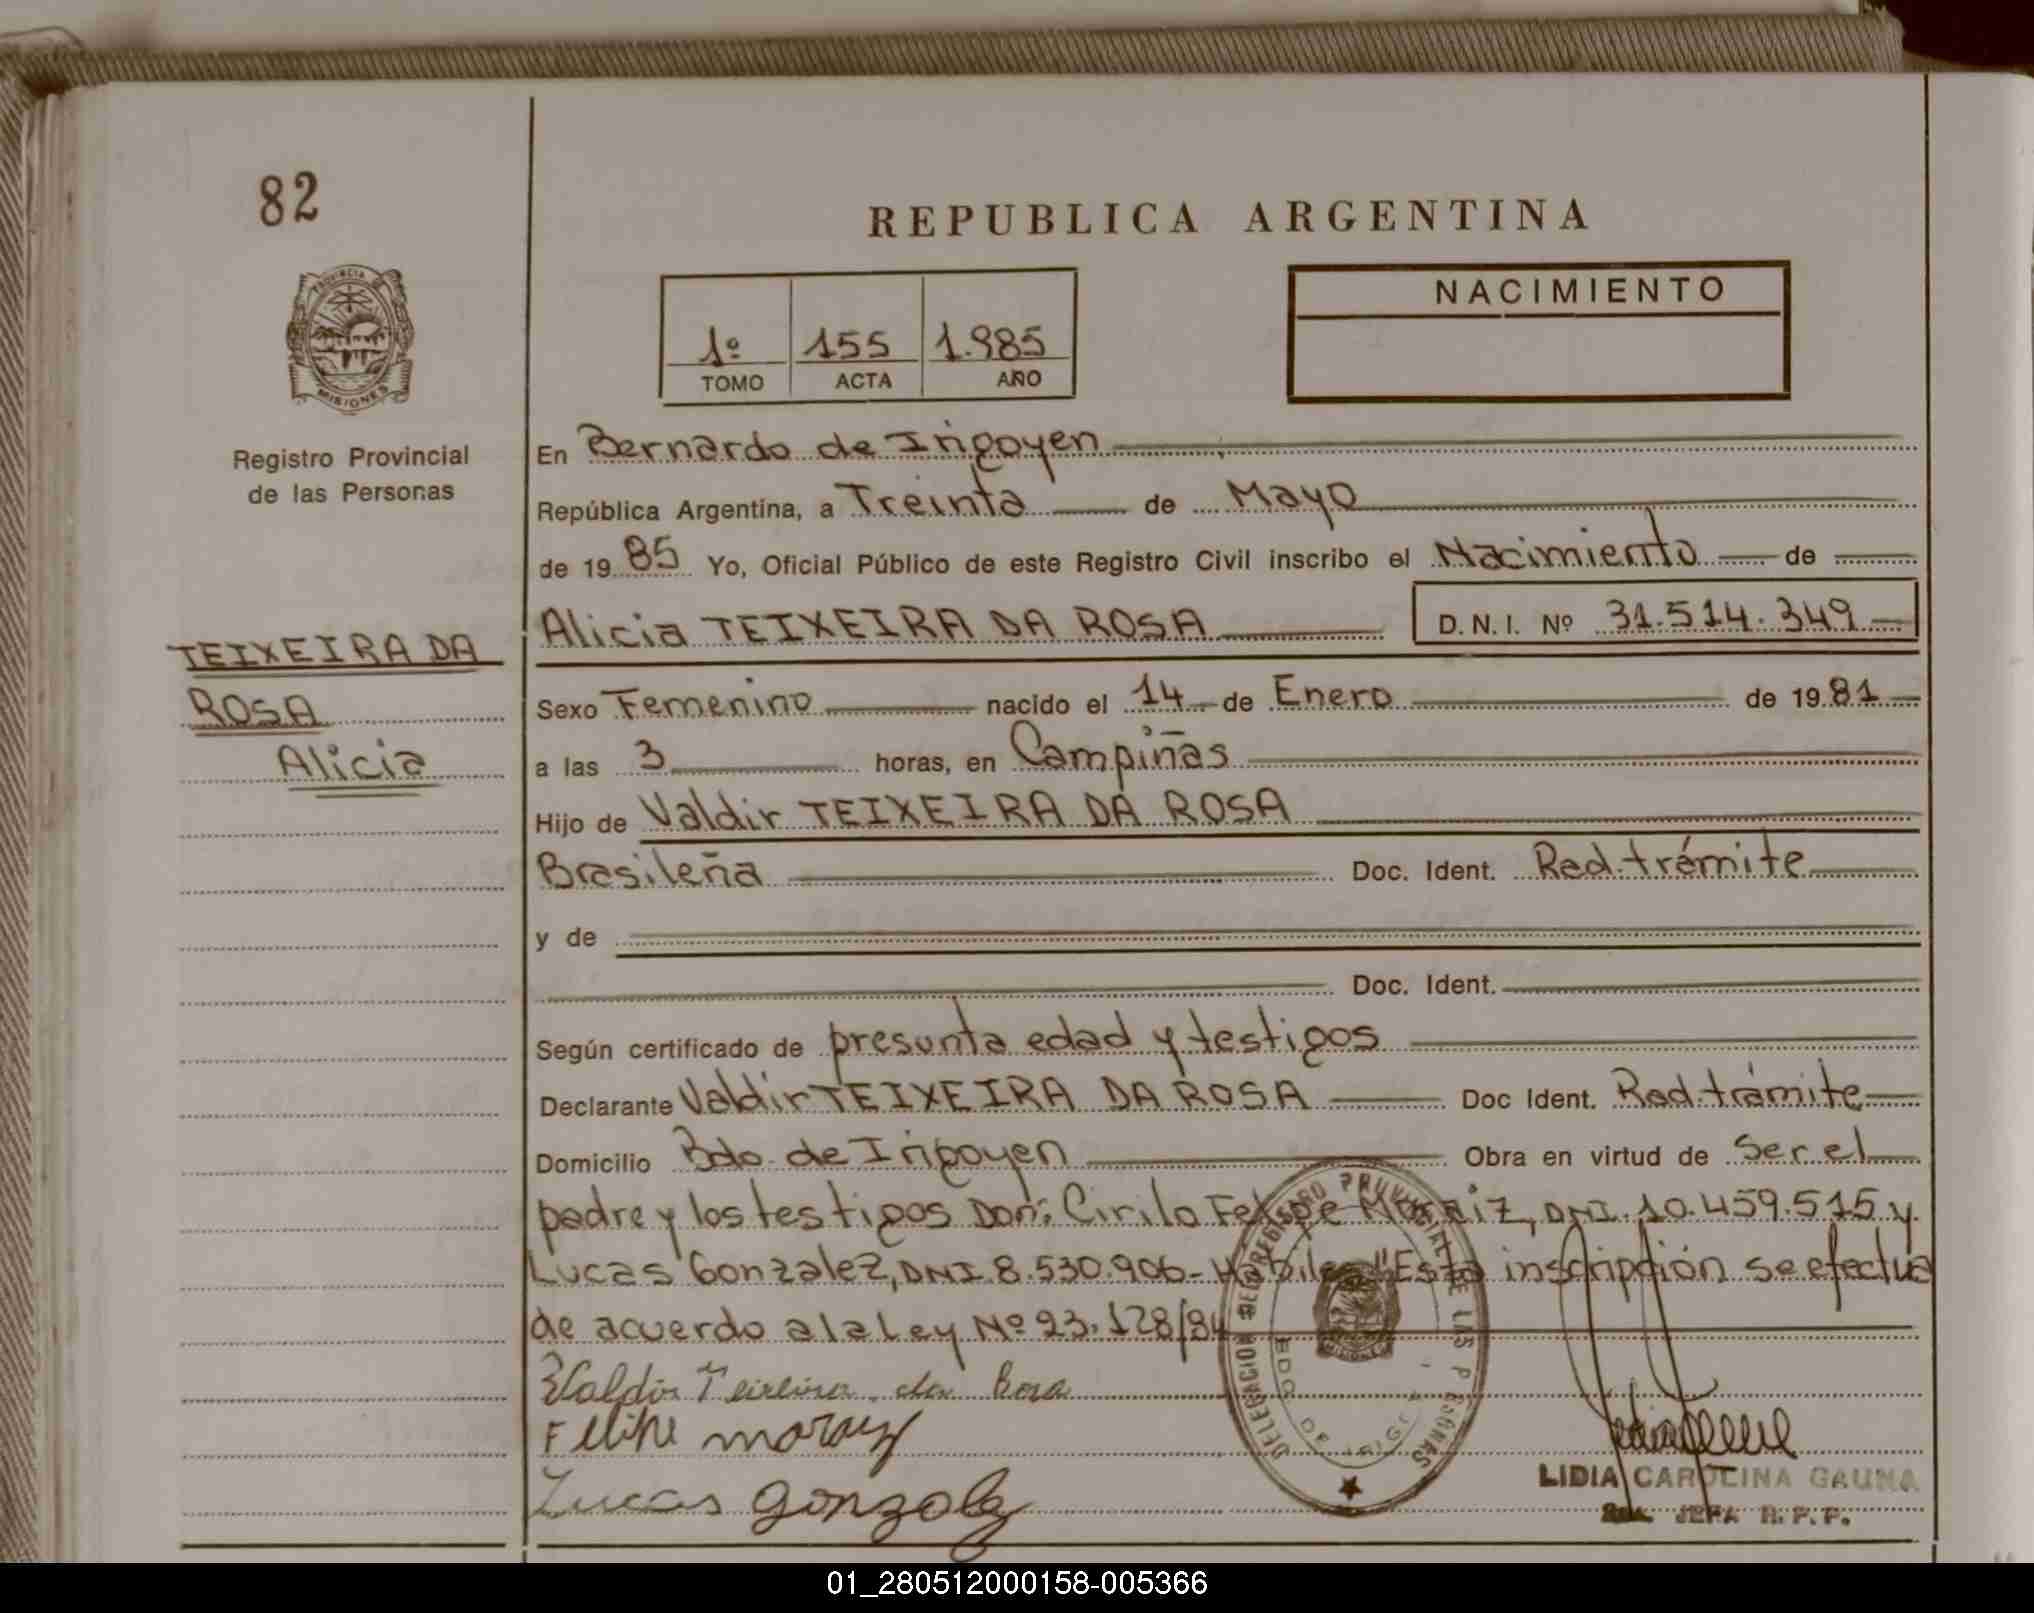 82
REPUBLICA ARGENTINA
PROVINCIA
MISIONES
Registro Provincial
de las Personas
1º 155 1.985
TOMO ACTA AÑO
NACIMIENTO
En Bernardo de Irigoyen
República Argentina, a Treinta de Mayo
de 19 85 Yo, Oficial Público de este Registro Civil inscribo el Nacimiento de
Alicia TEIXEIRA DA ROSA D.N.I. Nº 31.514.349
TEIXEIRA DA
ROSA
Alicia
Sexo Femenino nacido el 14 de Enero de 1981
a las 3 horas, en Campiñas
Hijo de Valdir TEIXEIRA DA ROSA
Brasileña Doc. Ident. Rad. trámite
y de
Doc. Ident.
Según certificado de presunta edad y testigos
Declarante Valdir TEIXEIRA DA ROSA Doc Ident. Rad. trámite
Domicilio Bdo. de Irigoyen Obra en virtud de ser el
padre y los testigos Don: Cirilo Felipe DNI. 10.459.515 y
Lucas Gonzalez, DNI 8.530.906- Hábiles "Esta inscripción se efectua
de acuerdo a la Ley Nº 23.128/84
Valdir Teixeira da Rosa
Felipe moraiz
Lucas gonzalez
DELEGACION DEL REGISTRO PROVINCIAL DE LAS PERSONAS
BDO. DE IRIGOYEN
MISIONES
LIDIA CAROLINA GAUNA
JEFA R.P.P.
01_280512000158-005366